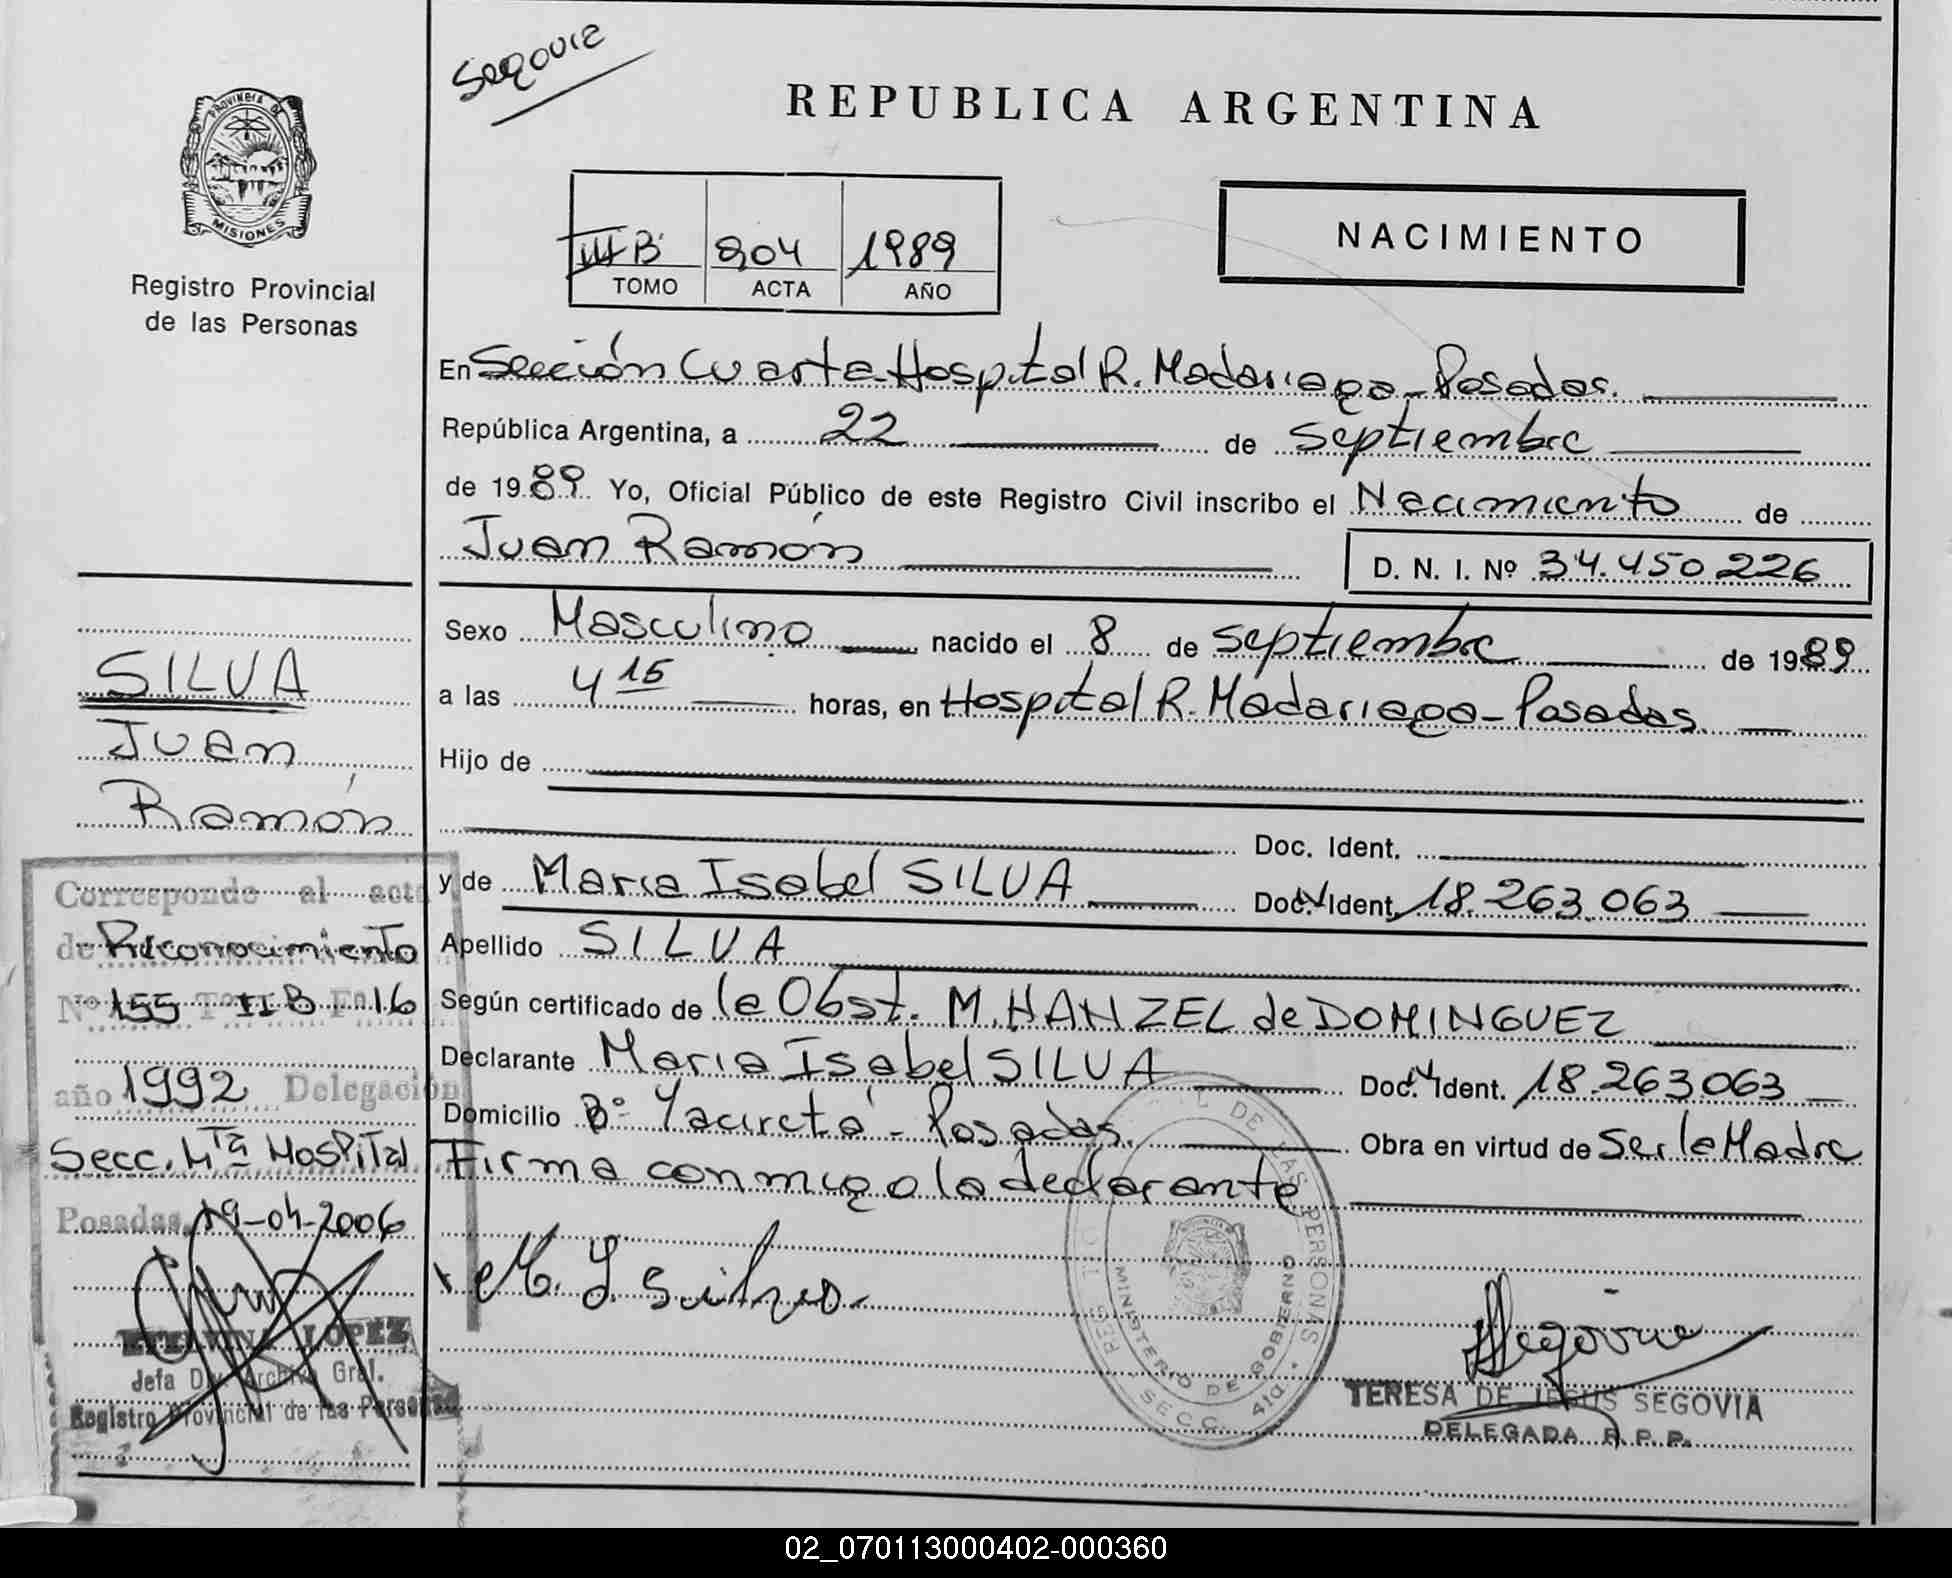 Segovia
PROVINCIA DE
MISIONES
Registro Provincial
de las Personas
REPUBLICA ARGENTINA
III B 904 1989
TOMO ACTA AÑO
NACIMIENTO
En Sección Cuarta Hospital R. Madariaga - Posadas.
República Argentina, a 22 de Septiembre
de 1989 Yo, Oficial Público de este Registro Civil inscribo el Nacimiento de
Juan Ramón
D. N. I. Nº 34.450.226
Sexo Masculino nacido el 8 de Septiembre de 1989
a las 4 15 horas, en Hospital R. Madariaga - Posadas.
Hijo de
Doc. Ident.
y de Maria Isabel SILVA Doc. Ident. 18.263.063
Apellido SILVA
Según certificado de la Obst. M. HANZEL de DOMINGUEZ
Declarante Maria Isabel SILVA Doc. Ident. 18.263.063
Domicilio Bº Yacireta - Posadas. Obra en virtud de Ser la Madre
Firma conmigo la declarante
M. I. Silva
TERESA DE JESUS SEGOVIA
DELEGADA R. P. P.
DE LAS PERSONAS
MINISTERIO DE GOBIERNO
SECC. 4ta.
SILVA
Juan
Ramón
Corresponde al acta
de Reconocimiento
Nº 155 Tº II B Fº 16
año 1992 Delegación
Secc. 4ta Hospital
Posadas, 19-04-2006
ETELVINA LOPEZ
Jefa Div. Archivo Gral.
Registro Provincial de las Personas
02_070113000402-000360